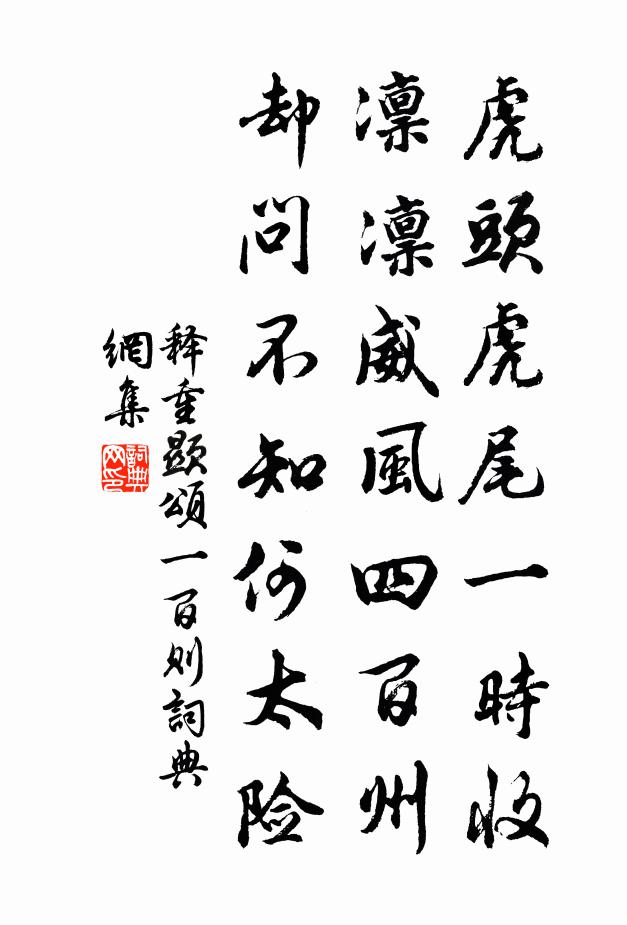 虎頭虎尾一時收
凜凜威風四百州
却問不知何太险
释重顯頌一百则詞典
網集
詞典網印